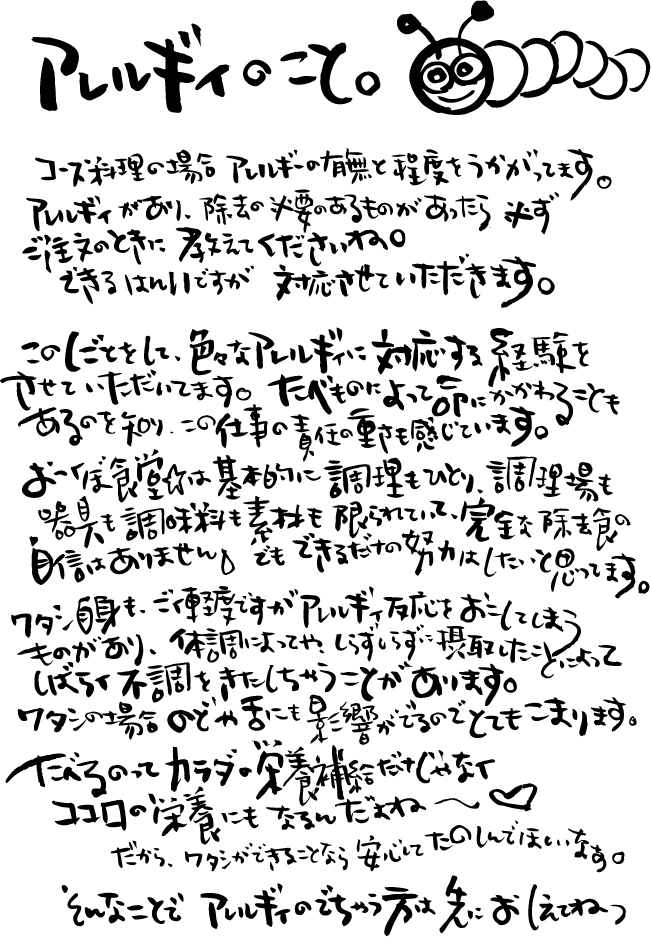 アレルギィのこと。
コース料理の場合 アレルギーの有無と程度をうかがってます。
アレルギィがあり、除去の必要のあるものがあったら 必ず
ご注文のときに 教えてくださいね。
できるはんいですが 対応させていただきます。
このしごとをして、色々なアレルギィに対応する経験を
させていただいてます。たべものによって命にかかわることも
あるのを知り、この仕事の責任の重さも感じています。
お〜くぼ食堂は基本的に調理もひとり、調理場も
器具も調味料も素材も限られていて、完全な除去食の
自信はありません。でもできるだけの努力はしたいと思ってます。
ワタシ自身も、ごく軽度ですがアレルギィ反応をおこしてしまう
ものがあり、体調によってや、しらずしらずに摂取したことによって
しばらく不調をきたしちゃうことがあります。
ワタシの場合 のどや舌にも影響がでるのでとてもこまります。
たべるのってカラダの栄養補給だけじゃなく
ココロの栄養にもなるんだよね〜♡
だから、ワタシができることなら安心してたのしんでほしいなぁ。
そんなことで アレルギィのでちゃう方は先におしえてねっ